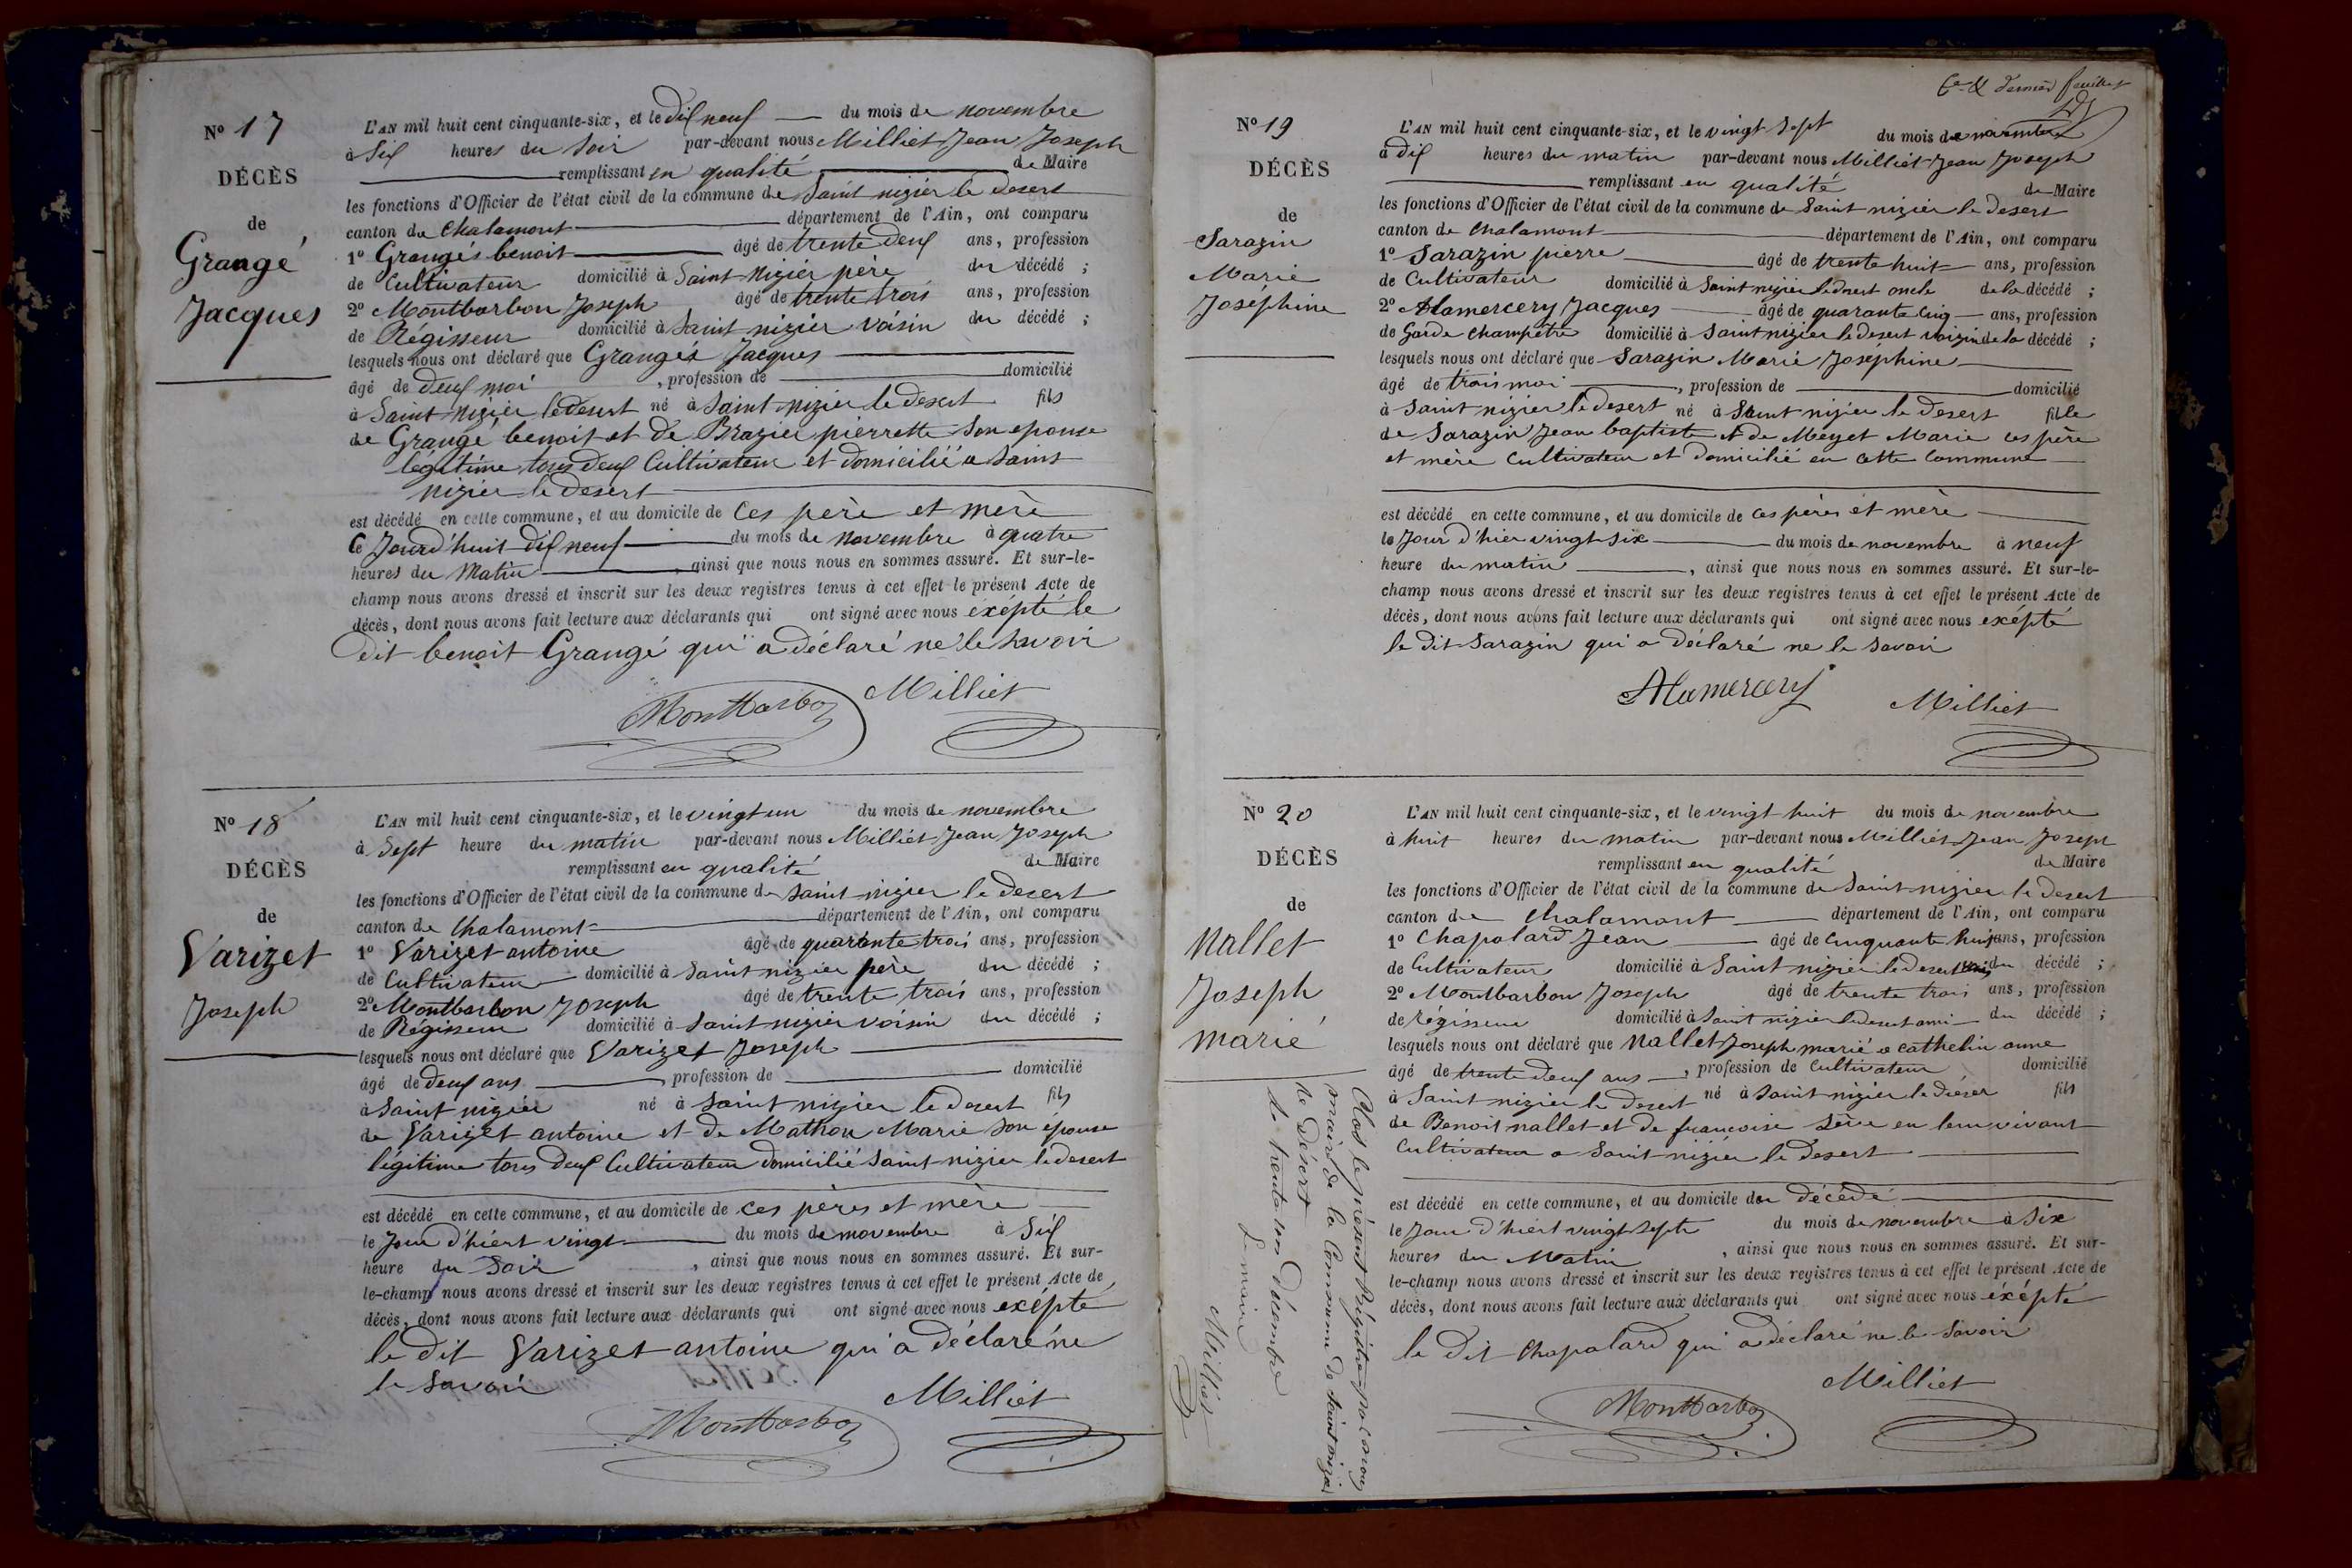 Nº 17
DÉCÈS
de
Grangé
Jacques
L'AN mil huit cent cinquante-six, et le dix neuf du mois de novembre
à Six heures du soir par-devant nous Milliet Jean Joseph
remplissant en qualité de Maire
les fonctions d'Officier de l'état civil de la commune de Saint nizier le desert
canton de Chalamont département de l'Ain, ont comparu
1º Grangés benoit âgé de trente deux ans, profession
de Cultivateur domicilié à Saint Nizier père du décédé ;
2º Montbarbon Joseph âgé de trente trois ans, profession
de Régisseur domicilié à Saint nizier voisin du décédé ;
lesquels nous ont déclaré que Grangés Jacques
âgé de deux moi , profession de domicilié
à Saint Nizier le desert né à Saint nizier le desert fils
de Grangé benoit et de Brazier pierrette son epouse
légitime tous deux Cultivateur et domicilié a Saint
nizier le desert
est décédé en cette commune, et au domicile de Ces père et mère
Ce Jourd'huit dix neuf du mois de novembre à quatre
heures du Matin , ainsi que nous nous en sommes assuré. Et sur-le-
champ nous avons dressé et inscrit sur les deux registres tenus à cet effet le présent Acte de
décès, dont nous avons fait lecture aux déclarants qui ont signé avec nous exépté le
Dit benoit Grangé qui a déclaré ne le savoir
Montbarbon Milliet
Nº 18
DÉCÈS
de
Varizet
Joseph
L'AN mil huit cent cinquante-six, et le vingt un du mois de novembre
à Sept heure du matin par-devant nous Milliet Jean Joseph
remplissant en qualité de Maire
les fonctions d'Officier de l'état civil de la commune de Saint nizier le desert
canton de Chalamont département de l'Ain, ont comparu
1º Varizet antoine âgé de quarante trois ans, profession
de Cultivateur domicilié à Saint nizier père du décédé ;
2º Montbarbon Joseph âgé de trente trois ans, profession
de Régisseur domicilié à Saint nizier voisin du décédé ;
lesquels nous ont déclaré que Varizet Joseph
âgé de deux ans , profession de domicilié
à Saint nizier né à Saint nizier le desert fils
de Varizet antoine et de Mathon Marie son épouse
légitime tous deux Cultivateur domicilié Saint nizier le desert
est décédé en cette commune, et au domicile de Ces pères et mère
le Jour d'hiert vingt du mois de novembre à Six
heure du Soir , ainsi que nous nous en sommes assuré. Et sur-
le-champ nous avons dressé et inscrit sur les deux registres tenus à cet effet le présent Acte de
décès, dont nous avons fait lecture aux déclarants qui ont signé avec nous exépté
le dit Varizet antoine qui a déclaré ne
le Savoir Milliet
Montbarbon
6e & dernier feuillet
Nº 19
DÉCÈS
de
Sarazin
Marie
Joséphine
L'AN mil huit cent cinquante-six, et le vingt Sept du mois de novembre
à dix heures du matin par-devant nous Milliet Jean Joseph
remplissant en qualité de Maire
les fonctions d'Officier de l'état civil de la commune de Saint nizier le desert
canton de Chalamont département de l'Ain, ont comparu
1º Sarazin pierre âgé de trente huit ans, profession
de Cultivateur domicilié à Saint nizier le desert oncle de la décédé ;
2º Alamercery Jacques âgé de quarante cinq ans, profession
de Garde champêtre domicilié à Saint nizier le desert voizin de la décédé ;
lesquels nous ont déclaré que Sarazin Marie Joséphine
âgé de trois moi , profession de domicilié
à Saint nizier le desert né à Saint nizier le desert fille
de Sarazin Jean baptiste et de Meyet Marie ces père
et mère Cultivateur et domicilié en cette Commune
est décédé en cette commune, et au domicile de Ces pères et mère
le Jour d'hier vingt six du mois de novembre à neuf
heure du matin , ainsi que nous nous en sommes assuré. Et sur-le-
champ nous avons dressé et inscrit sur les deux registres tenus à cet effet le présent Acte de
décès, dont nous avons fait lecture aux déclarants qui ont signé avec nous exépté
le dit Sarazin qui a déclaré ne le savoir
Alamercery Milliet
Nº 20
DÉCÈS
de
Nallet
Joseph
marié
L'AN mil huit cent cinquante-six, et le vingt huit du mois de novembre
à huit heures du matin par-devant nous Milliet Jean Joseph
remplissant en qualité de Maire
les fonctions d'Officier de l'état civil de la commune de Saint nizier le desert
canton de Chalamont département de l'Ain, ont comparu
1º Chapolard Jean âgé de Cinquante huit ans, profession
de Cultivateur domicilié à Saint nizier le desert du décédé ;
2º Montbarbon Joseph âgé de trente trois ans, profession
de régisseur domicilié à Saint nizier le desert ami du décédé ;
lesquels nous ont déclaré que Nallet Joseph marié a Cathelin anne
âgé de trente deux ans , profession de Cultivateur domicilié
à Saint nizier le desert né à Saint nizier le déser fils
de Benoit nallet et de francoise Sève en leur vivant
Cultivateur a Saint nizier le desert
est décédé en cette commune, et au domicile du Décédé
le Jour d'hiert vingt sept du mois de novembre à Six
heures du Matin , ainsi que nous nous en sommes assuré. Et sur-
le-champ nous avons dressé et inscrit sur les deux registres tenus à cet effet le présent Acte de
décès, dont nous avons fait lecture aux déclarants qui ont signé avec nous éxépté
le Dit Chapolard qui a déclaré ne le Savoir
Milliet
Montbarbon
Clos le présent Régistre par nous
maire de la Commune de Saint nizier
le Désert
le trente un Décembre
Le maire
Milliet